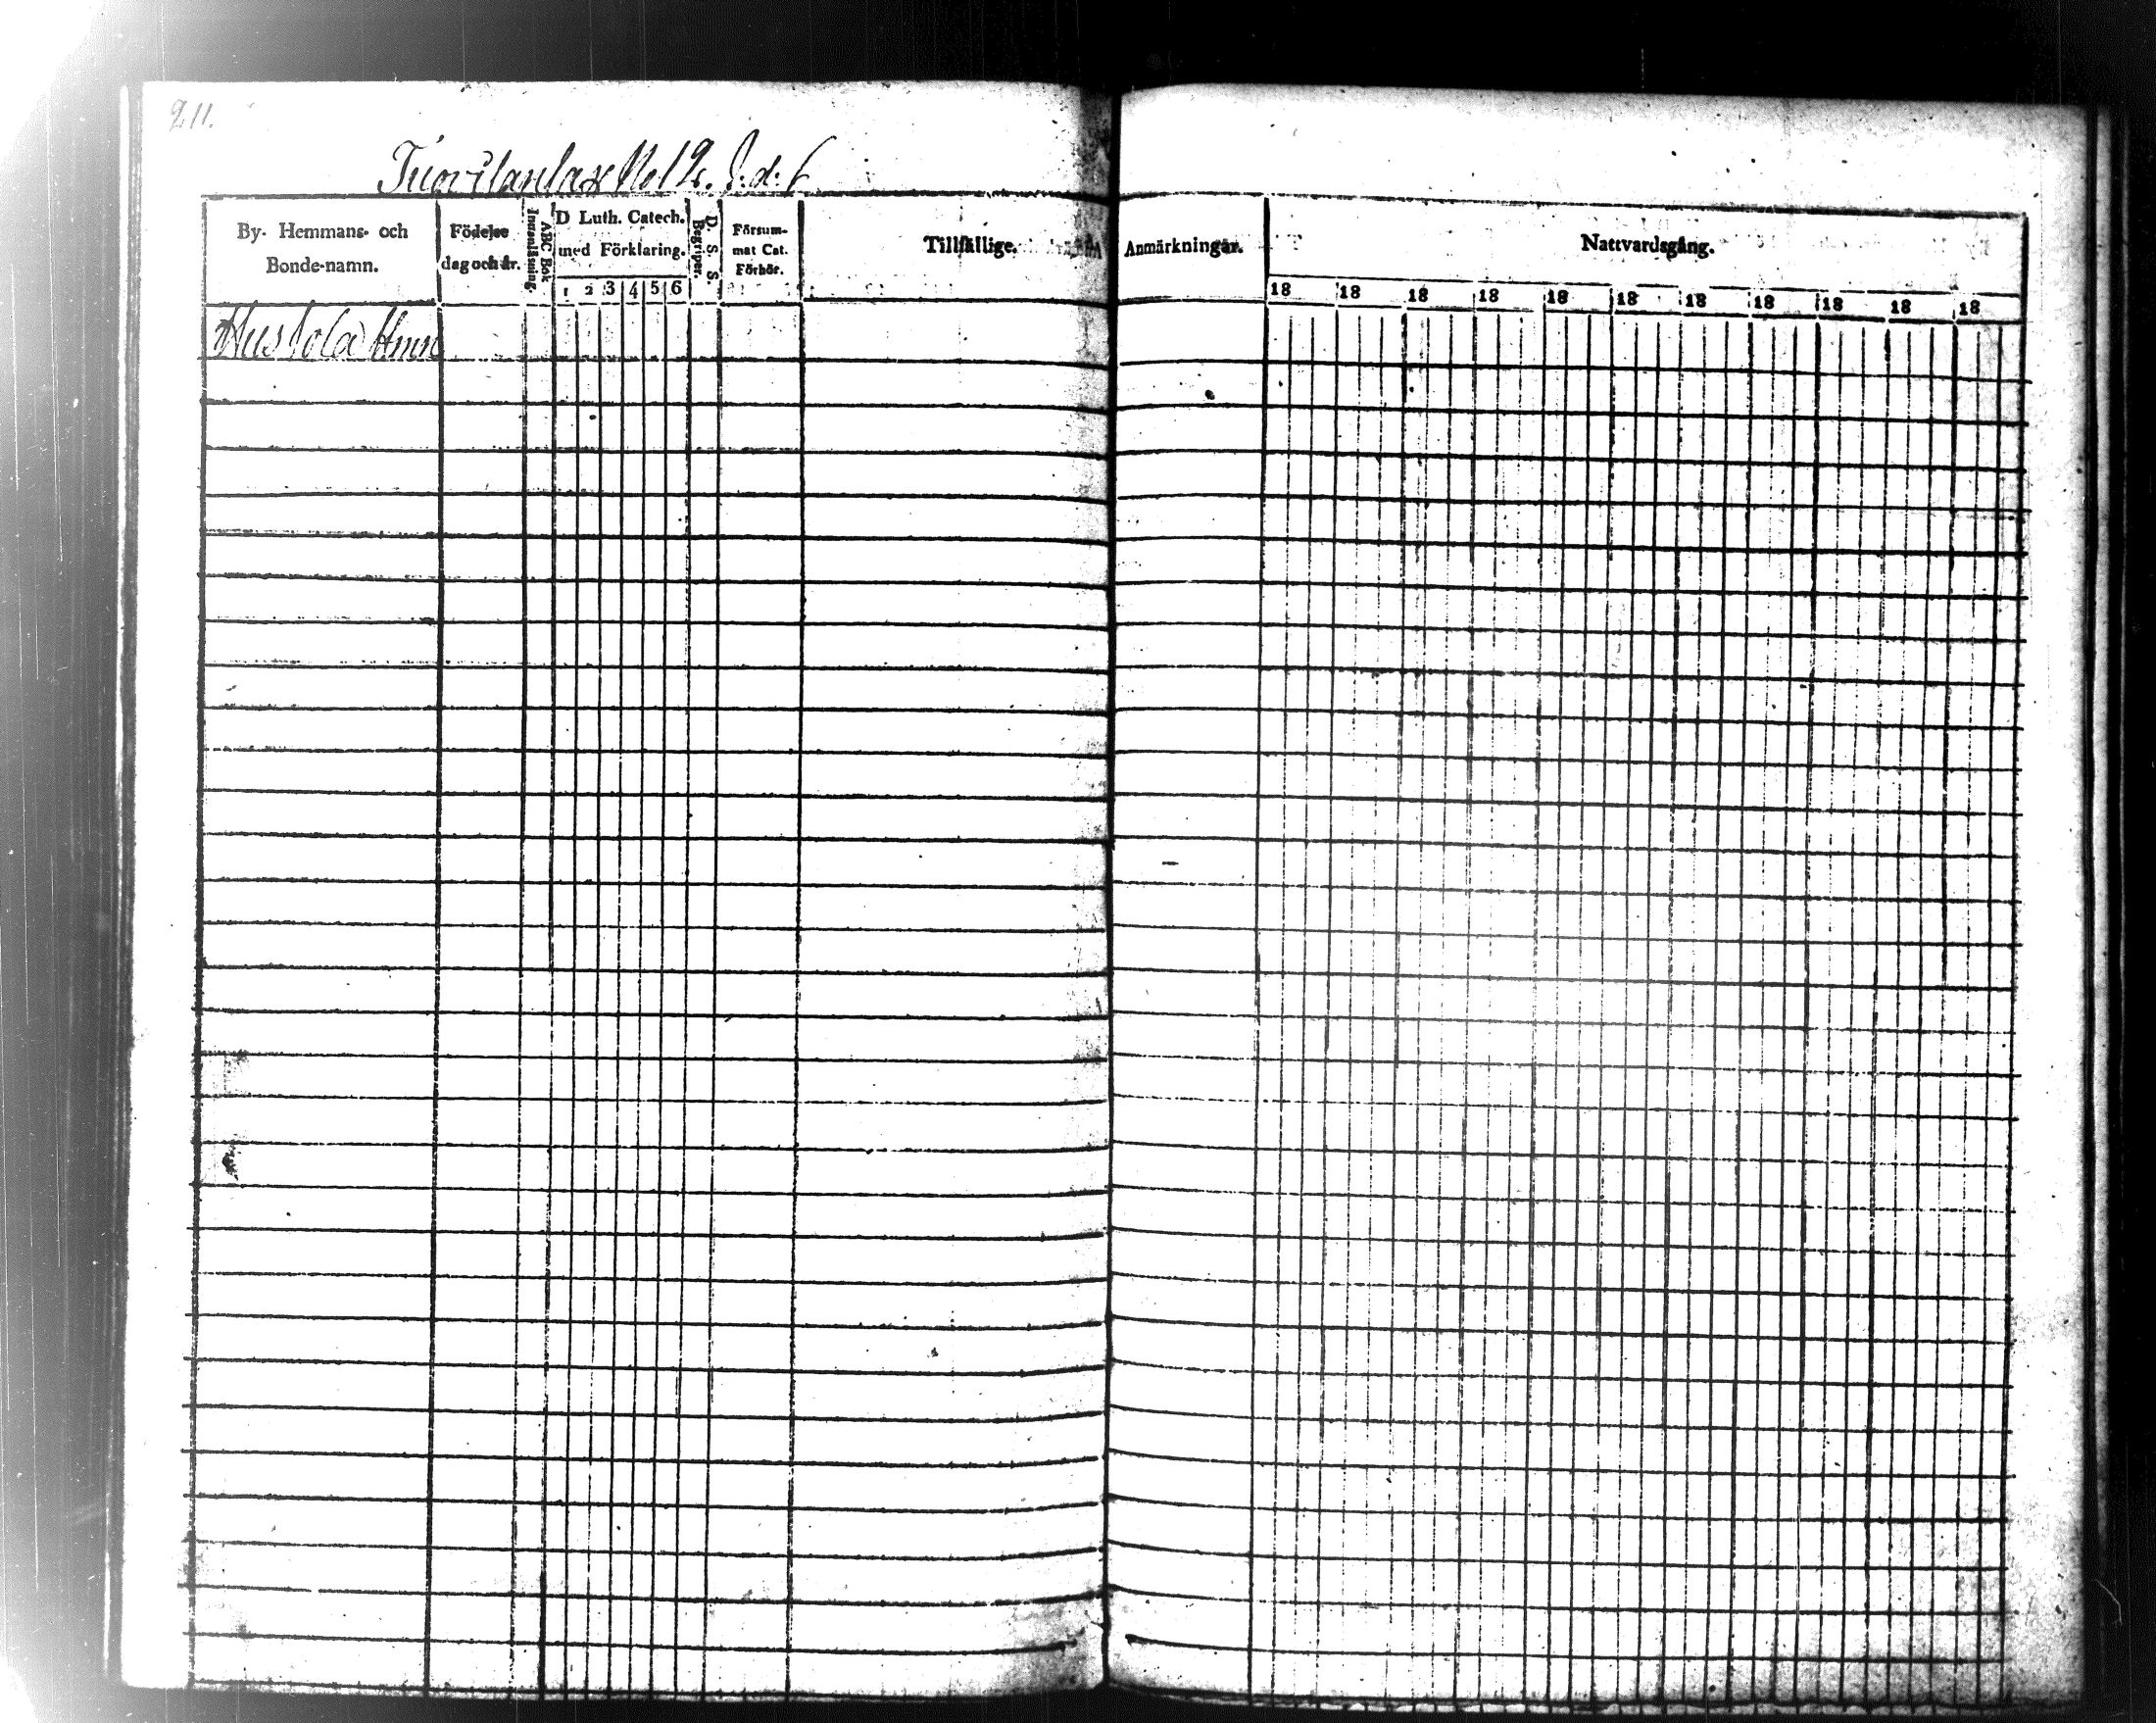 211.
Tuovilanlax No 12. S. d. 6
By- Hemmans- och
Bonde-namn.
Födelse
dag och år.
ABC Bok
Innanläsning.
D Luth. Catech.
med Förklaring.
1 2 3 4 5 6
D. S. S.
Begriper.
Försum-
mat Cat.
Förhör.
Tillfällige.
Anmärkningar.
Nattvardsgång.
18 18 18 18 18 18 18 18 18 18 18
Hustola Hmn